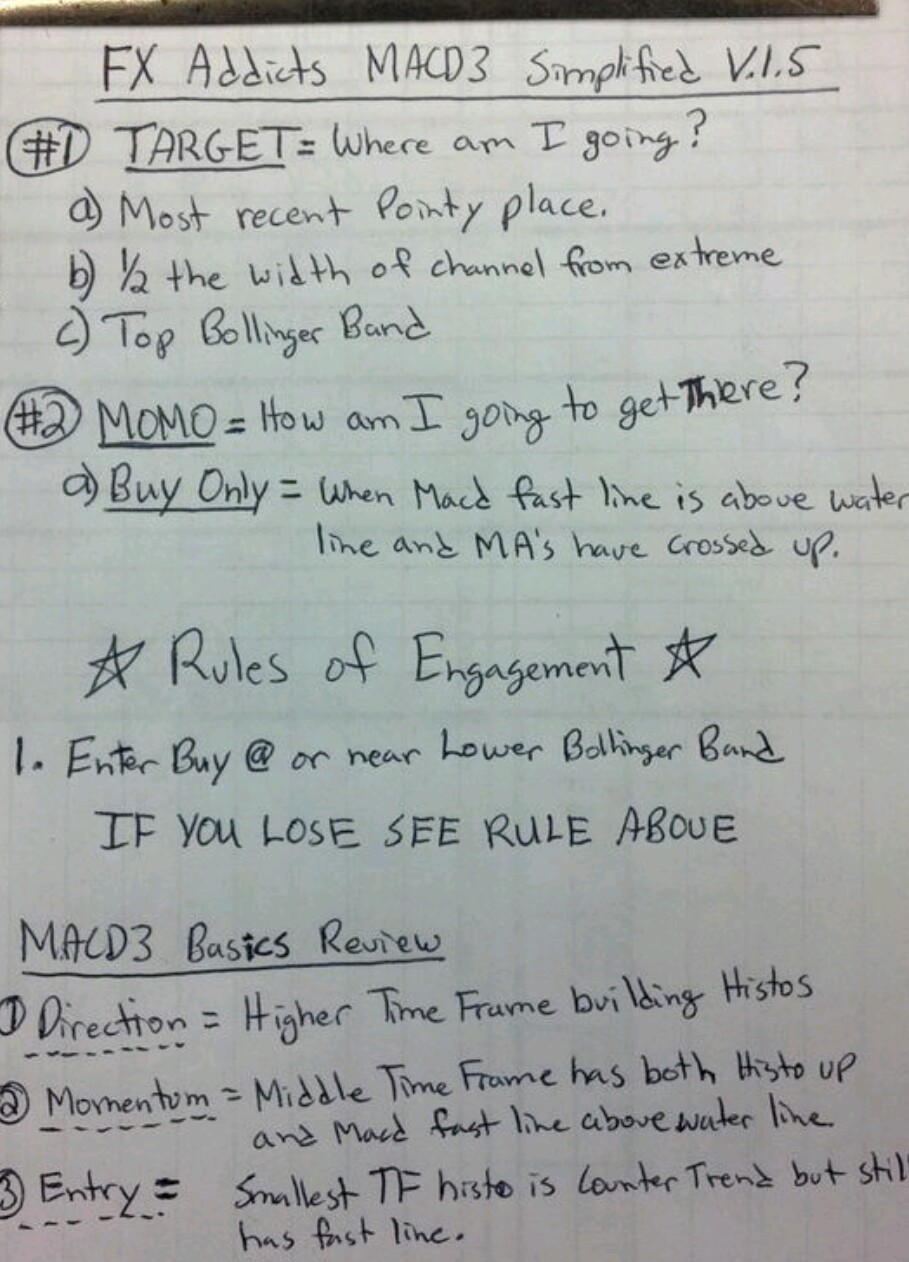 FX Addicts MACD3 Simplified V.1.5
#1 TARGET = Where am I going?
a) Most recent Pointy place.
b) ½ the width of channel from extreme
c) Top Bollinger Band
#2 MOMO = How am I going to get There?
a) Buy Only = When Macd fast line is above water
line and MA's have crossed up.
☆ Rules of Engagement ☆
1. Enter Buy @ or near Lower Bollinger Band
IF YOU LOSE SEE RULE ABOVE
MACD3 Basics Review
① Direction = Higher Time Frame building Histos
② Momentum = Middle Time Frame has both Histo up
and Macd fast line above water line
③ Entry = Smallest TF histo is Counter Trend but still
has fast line.